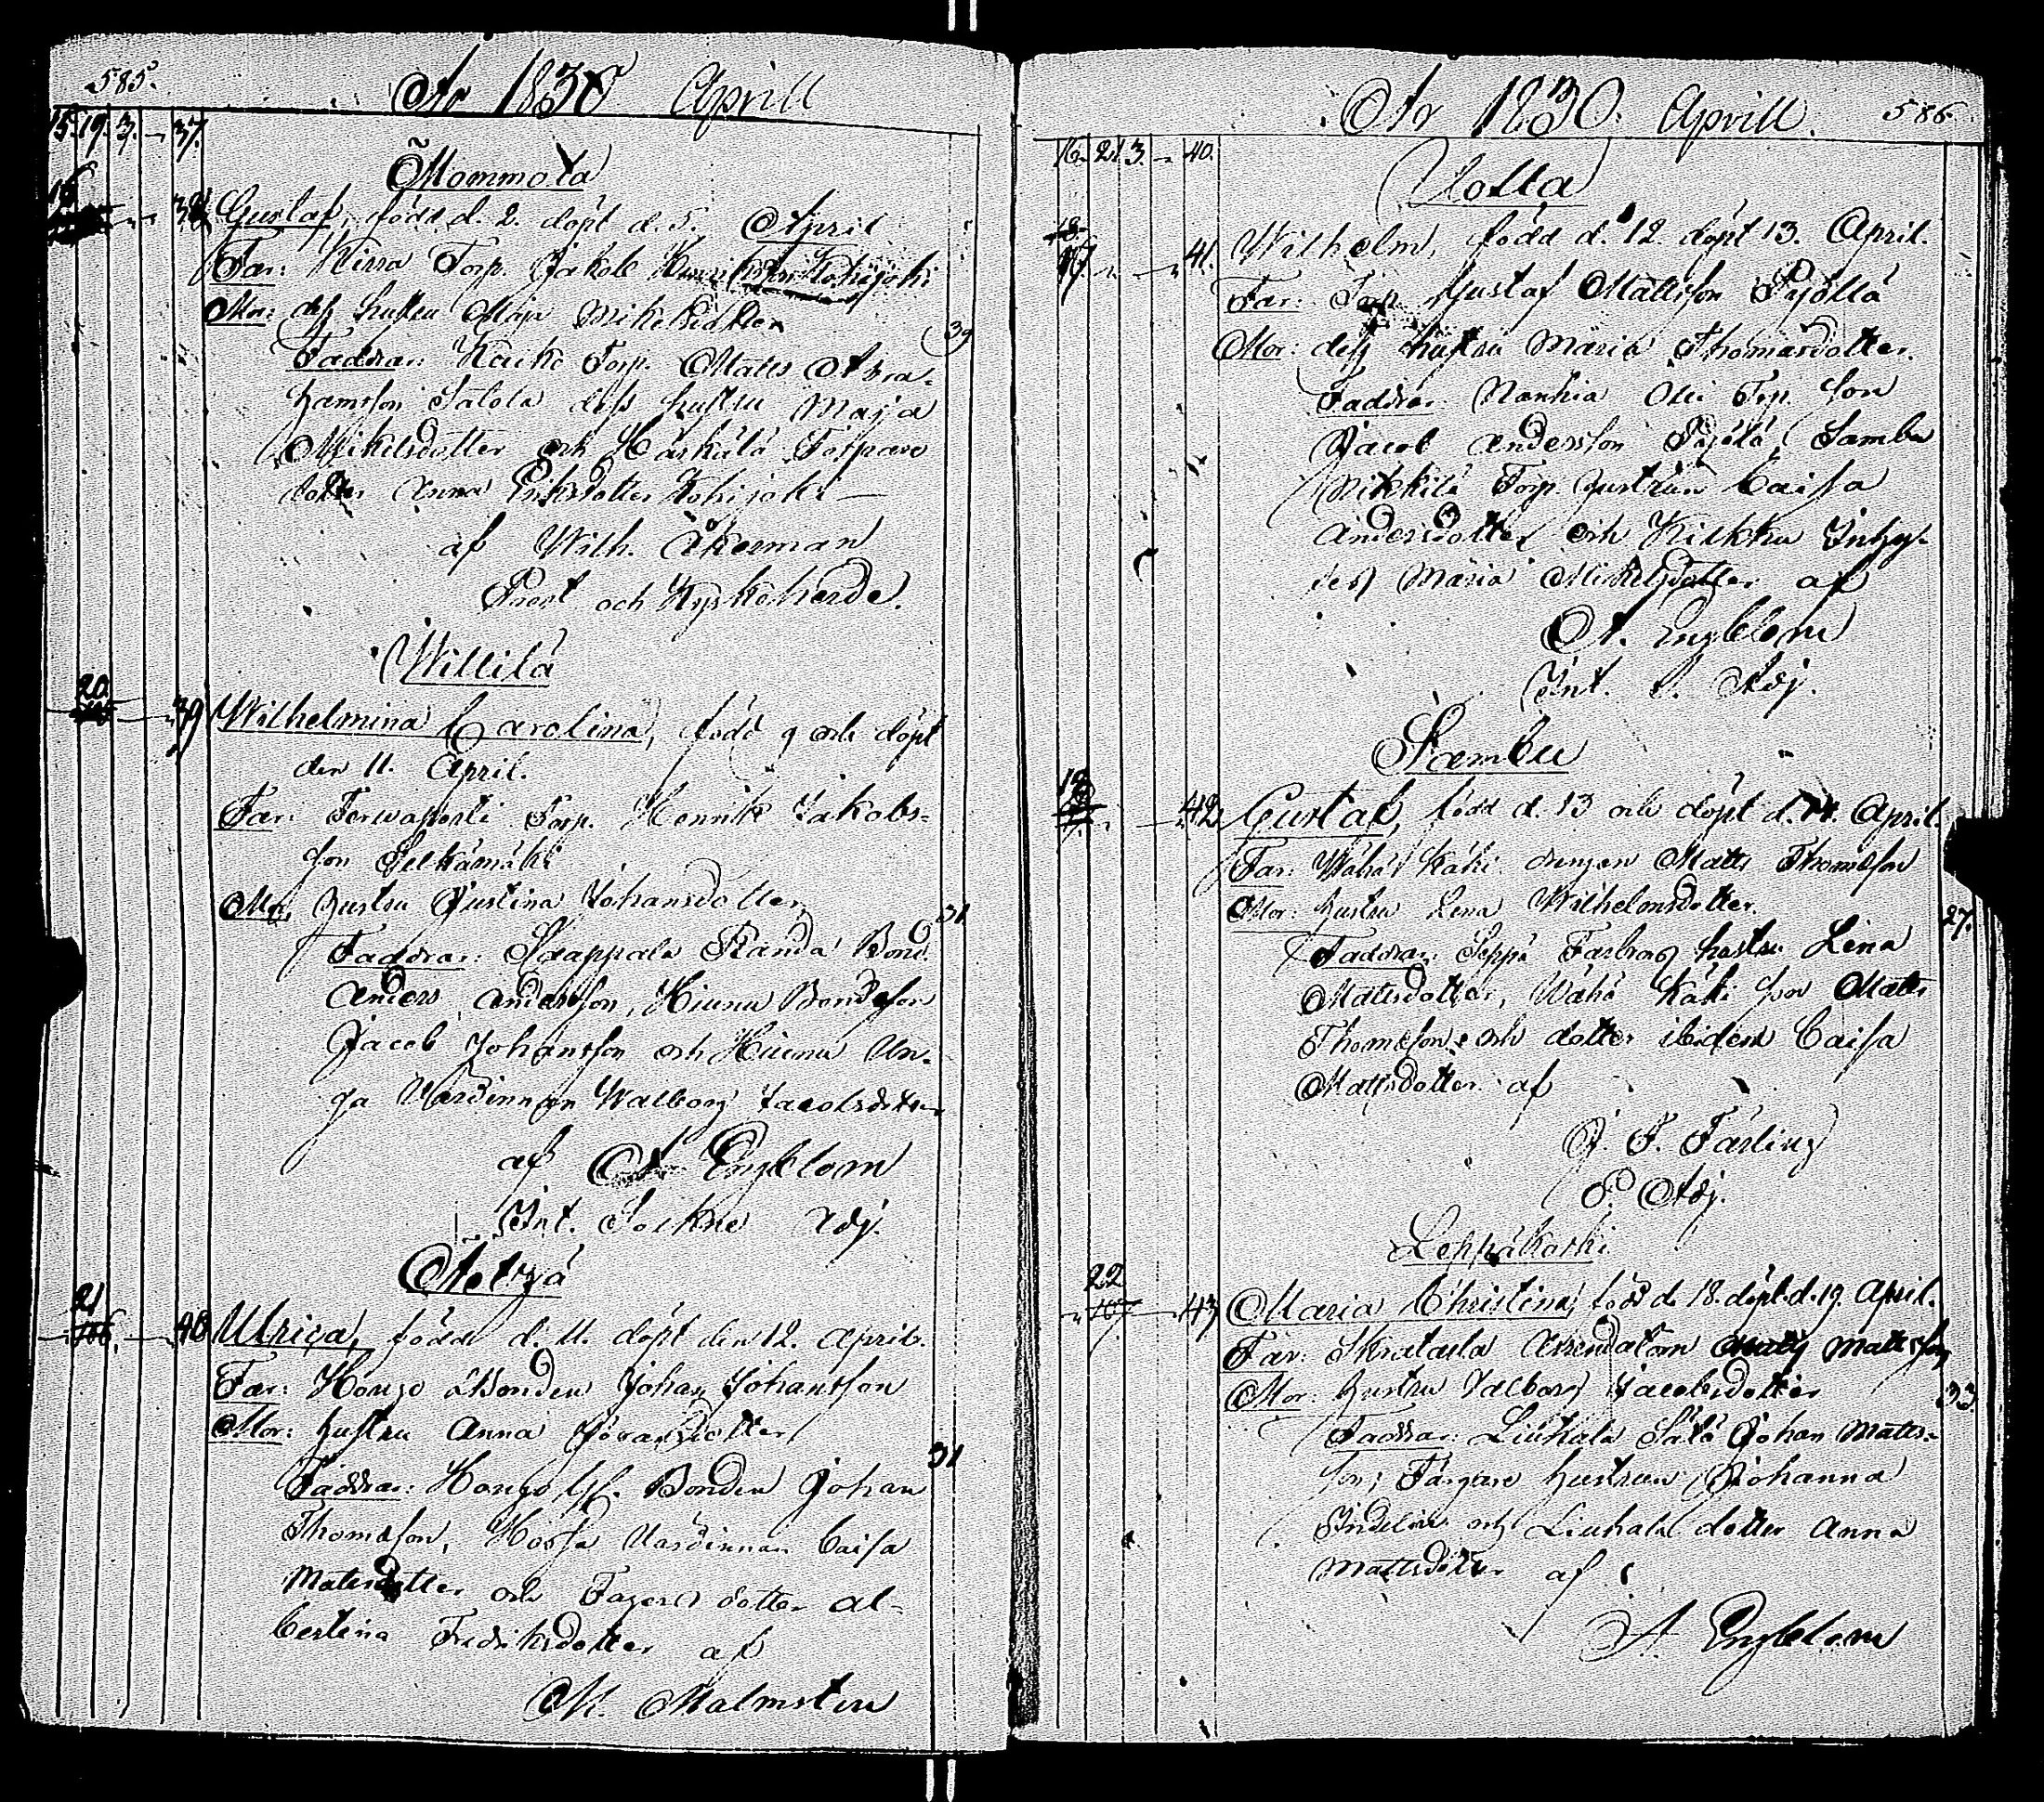 585.
År 1830 Aprill
15. 19. 3. - 37.
Mommola
16
38 Gustaf, född d. 2. döpt d. 5. April
Far: Kirra Torp. Jakob Kohijoki
Mor: dess hustru Maja Mikelsdotter
39
Faddrar: Kauko Torp. Matts Abra-
hamsson Salola dess hustru Maja
Mikelsdotter och Härkälä Torpare
dotter Anna Eriksdotter Kohijoki
af Wilh. Åkerman
Prost och Kyrkoherde.
Willilä
20
39 Wilhelmina Carolina, född 9 och döpt
den 11. April.
Far: Torp. Henrik Jakobs-
son Selkämäki
Mor, hustru Justina Johansdotter
31
Faddrar: Skappala Randa Bond.
Anders Andersson, Hiunu Bondeson
Jacob Johansson och Hiunu Un-
ga Värdinnan Walborg Jacobsdotter
af A Engblom
Int. Sockne Adj.
Ätolä
21
106. 40 Ulrica, född d. 11. döpt den 12. April.
Far: Hongo Bonden Johan Johansson
Mor: hustru Anna Göransdotter
31
Faddrar: Hongo Bonden Johan
Thomasson, Hossa Värdinnan Caisa
Matsdotter och Fagers dotter Al-
bertina Fredriksdotter af
M. Malmsten
År 1830. Aprill. 586
16. 21. 3. - 40.
Uotila
18.
17 41. Wilhelm, född d. 12. döpt 13. April.
Far: Torp. Gustaf Mattsson Pÿöllä
Mor: dess hustru Maria Thomasdotter.
Faddrar: Nanhia Olli Torp. son
Jacob Andersson Pÿölä, Sambu
Nikkilä Torp. hustrun Caisa
Andersdotter och Kilkku Inhy-
ses Maria Mickelsdotter af
A. Engblom
Int. S. Adj.
Sambu
18
42 Gustaf, född d. 13 och döpt d. 14. April.
Far: Wähä Käki drengen Matts Thomasson
Mor: hustru Lena Wilhelmsdotter.
27.
Faddrar: Seppä Farbror hustru Lena
Mattsdotter, Wähä Käki son Matts
Thomasson och dotter ibidem Caisa
Mattsdotter af
J. F. Färling
P. Adj.
Leppäkoski
22
107 43 Maria Christina, född d. 18. döpt d. 19. April.
Far: Skratarla Arrendatorn Matts Mattsson
Mor: hustru Valborg Jacobsdotter
33
Faddrar: Liukala Sälä Johan Matts-
son; Färgare hustrun Johanna
Indelin och Liukala dotter Anna
Mattsdotter af
A. Engblom